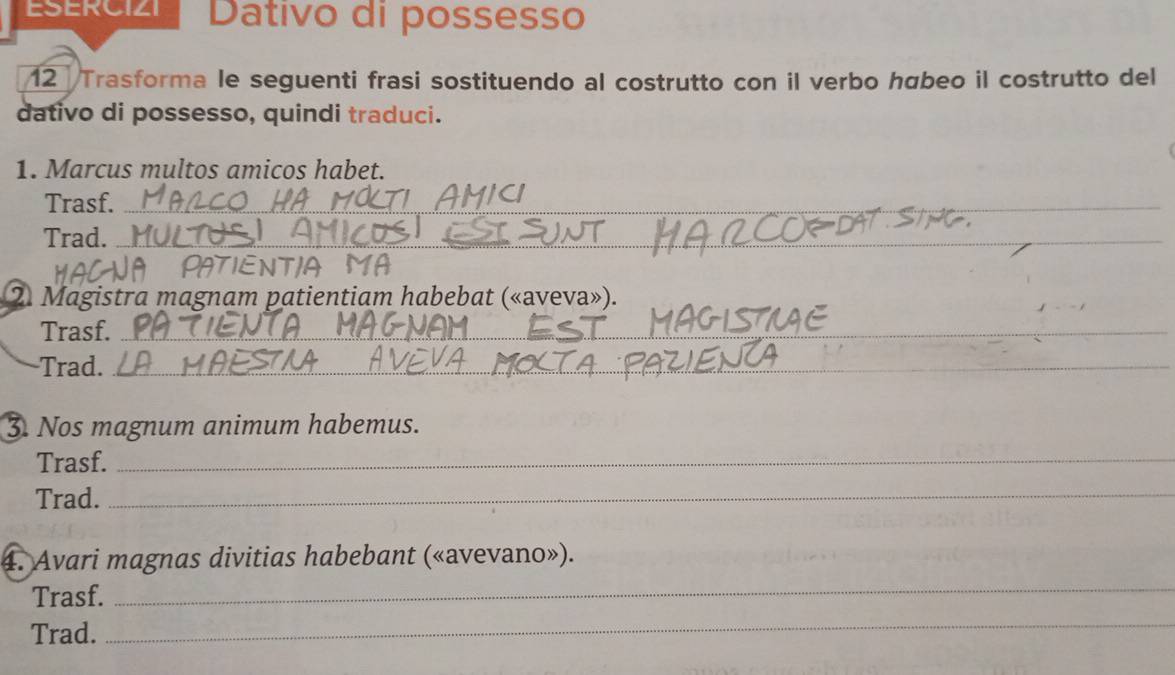 ESERCIZI Dativo di possesso
12 Trasforma le seguenti frasi sostituendo al costrutto con il verbo habeo il costrutto del
dativo di possesso, quindi traduci.
1. Marcus multos amicos habet.
Trasf. MARCO HA MOLTI AMICI
Trad. MULTOSI AMICOSI EST SUNT MARCO DAT. SING.
MAGNA PATIENTIA MA
2. Magistra magnam patientiam habebat («aveva»).
Trasf. PATIENTA MAGNAM EST MAGISTRAE
Trad. LA MAESTRA AVEVA MOLTA PAZIENZA
3. Nos magnum animum habemus.
Trasf.
Trad.
4. Avari magnas divitias habebant («avevano»).
Trasf.
Trad.